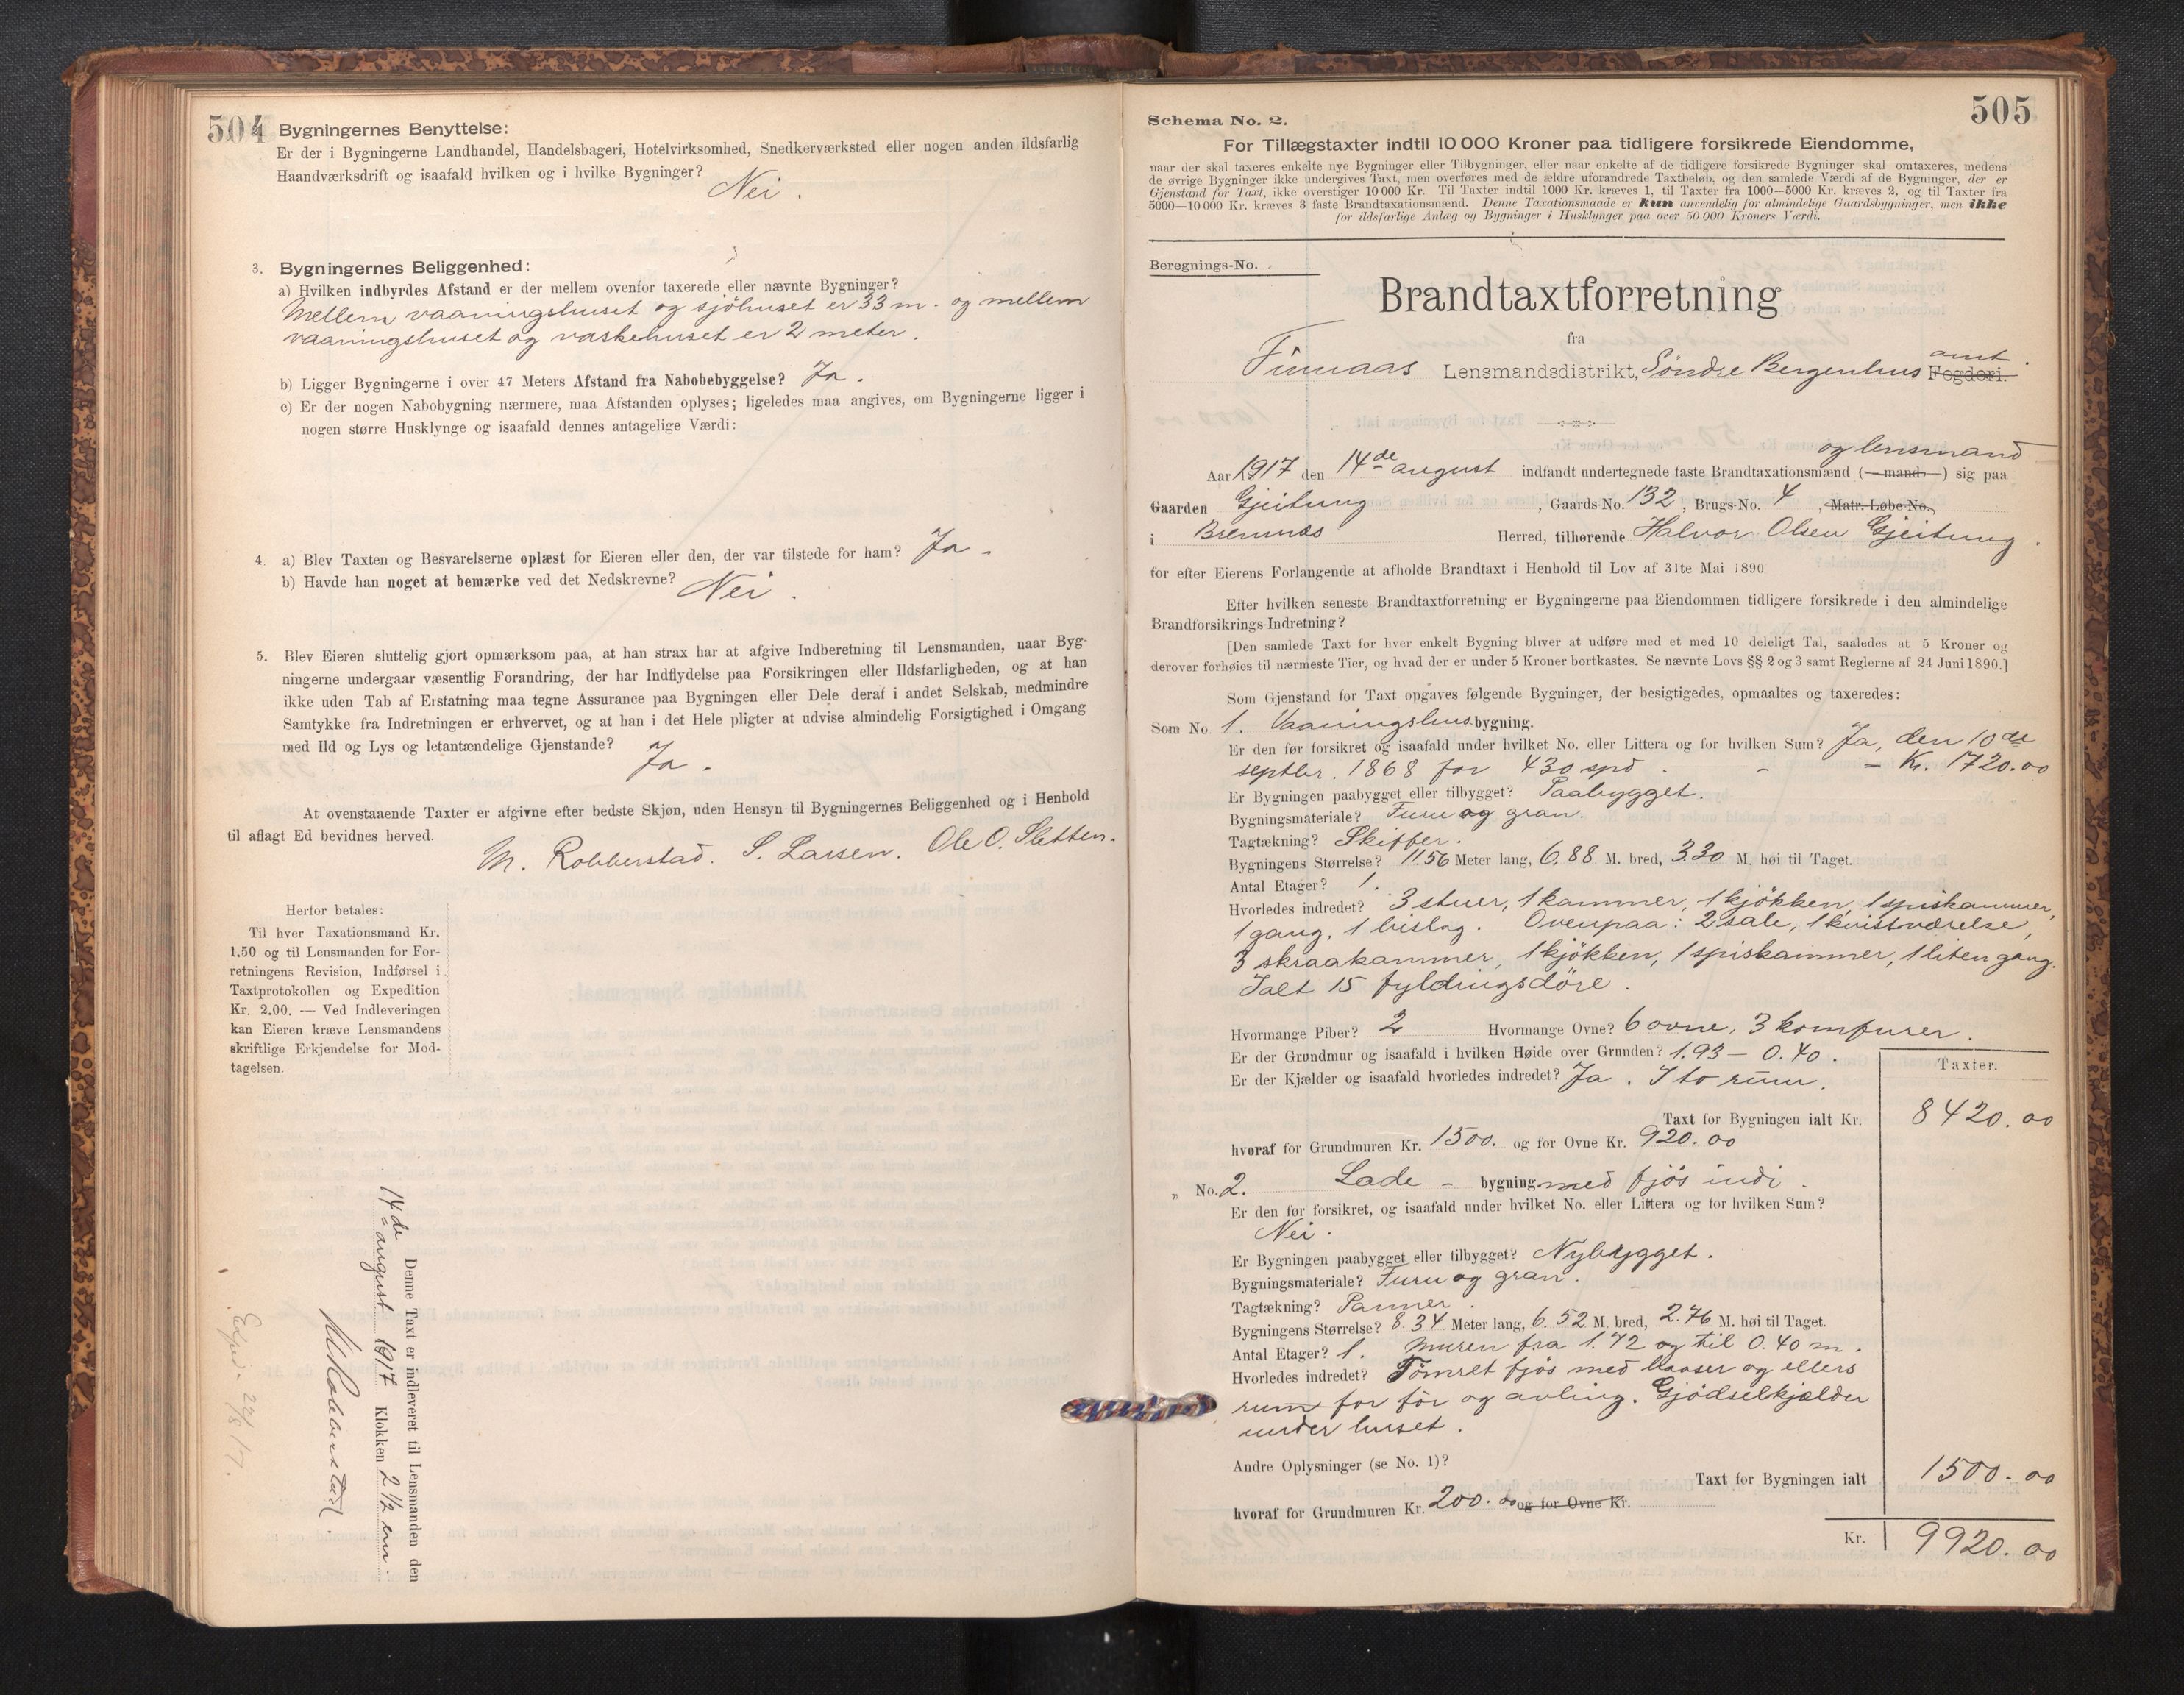 504
Bygningernes Benyttelse:
Er der i Bygningerne Landhandel, Handelsbageri, Hotelvirksomhed, Snedkerværksted eller nogen anden ildsfarlig
Haandværksdrift og isaafald hvilken og i hvilke Bygninger?
Nei.
3. Bygningernes Beliggenhed:
a) Hvilken indbyrdes Afstand er der mellem ovenfor taxerede eller nævnte Bygninger?
Mellem vaaningshuset og sjöhuset er 33 m. og mellem
vaaningshuset og vaskehuset er 2 meter.
b) Ligger Bygningerne i over 47 Meters Afstand fra Nabobebyggelse? Ja.
c) Er der nogen Nabobygning nærmere, maa Afstanden oplyses; ligeledes maa angives, om Bygningerne ligger i
nogen større Husklynge og isaafald dennes antagelige Værdi:
4. a) Blev Taxten og Besvarelserne oplæst for Eieren eller den, der var tilstede for ham? Ja.
b) Havde han noget at bemærke ved det Nedskrevne? Nei.
5. Blev Eieren sluttelig gjort opmærksom paa, at han strax har at afgive Indberetning til Lensmanden, naar Byg-
ningerne undergaar væsentlig Forandring, der har Indflydelse paa Forsikringen eller Ildsfarligheden, og at han
ikke uden Tab af Erstatning maa tegne Assurance paa Bygningen eller Dele deraf i andet Selskab, medmindre
Samtykke fra Indretningen er erhvervet, og at han i det Hele pligter at udvise almindelig Forsigtighed i Omgang
med Ild og Lys og letantændelige Gjenstande? Ja.
At ovenstaaende Taxter er afgivne efter bedste Skjøn, uden Hensyn til Bygningernes Beliggenhed og i Henhold
til aflagt Ed bevidnes herved.
M. Robberstad. S. Larsen. Ole O. Sletten.
Herfor betales:
Til hver Taxationsmand Kr.
1.50 og til Lensmanden for For-
retningens Revision, Indførsel i
Taxtprotokollen og Expedition
Kr. 2.00. — Ved Indleveringen
kan Eieren kræve Lensmandens
skriftlige Erkjendelse for Mod-
tagelsen.
Denne Taxt er indleveret til Lensmanden den
14de august 1917 Klokken 2 1/2 em.
M Robberstad.
Exped. 22/8 17.
505
Schema No. 2.
For Tillægstaxter indtil 10 000 Kroner paa tidligere forsikrede Eiendomme,
naar der skal taxeres enkelte nye Bygninger eller Tilbygninger, eller naar enkelte af de tidligere forsikrede Bygninger skal omtaxeres, medens
de øvrige Bygninger ikke undergives Taxt, men overføres med de ældre uforandrede Taxtbeløb, og den samlede Værdi af de Bygninger, der er
Gjenstand for Taxt, ikke overstiger 10 000 Kr. Til Taxter indtil 1000 Kr. kræves 1, til Taxter fra 1000—5000 Kr. kræves 2, og til Taxter fra
5000—10 000 Kr. kræves 3 faste Brandtaxationsmænd. Denne Taxationsmaade er kun anvendelig for almindelige Gaardsbygninger, men ikke
for ildsfarlige Anlæg og Bygninger i Husklynger paa over 50 000 Kroners Værdi.
Beregnings-No.
Brandtaxtforretning
fra
Finnaas Lensmandsdistrikt, Söndre Bergenhus Fogderi. amt.
Aar 1917 den 14de august indfandt undertegnede faste Brandtaxationsmænd (mand) og lensmand sig paa
Gaarden Gjeitung, Gaards-No. 132, Brugs-No. 4, Matr. Løbe-No.
i Bremnes Herred, tilhørende Halvor Olsen Gjeitung.
for efter Eierens Forlangende at afholde Brandtaxt i Henhold til Lov af 31te Mai 1890
Efter hvilken seneste Brandtaxtforretning er Bygningerne paa Eiendommen tidligere forsikrede i den almindelige
Brandforsikrings-Indretning?
[Den samlede Taxt for hver enkelt Bygning bliver at udføre med et med 10 deleligt Tal, saaledes at 5 Kroner og
derover forhøies til nærmeste Tier, og hvad der er under 5 Kroner bortkastes. Se nævnte Lovs §§ 2 og 3 samt Reglerne af 24 Juni 1890.]
Som Gjenstand for Taxt opgaves følgende Bygninger, der besigtigedes, opmaaltes og taxeredes:
Som No 1. Vaaningshus bygning.
Er den før forsikret og isaafald under hvilket No. eller Littera og for hvilken Sum? Ja, den 10de
septbr. 1868 for 430 spd. - - Kr. 1720.00
Er Bygningen paabygget eller tilbygget? Paabygget.
Bygningsmateriale? Furu og gran.
Tagtækning? Skiffer.
Bygningens Størrelse? 11.56 Meter lang, 6.88 M. bred, 3.30 M. høi til Taget.
Antal Etager? 1.
Hvorledes indredet? 3 stuer, 1 kammer, 1 kjökken, 1 spiskammer,
1 gang, 1 bislag. Ovenpaa: 2 sale, 1 kvistværelse,
3 skraakammer, 1 kjökken, 1 spiskammer, 1 liten gang.
Ialt 15 fyldingsdöre.
Hvormange Piber? 2 Hvormange Ovne? 6 ovne, 3 komfurer.
Er der Grundmur og isaafald i hvilken Høide over Grunden? 1.93 — 0.40.
Er der Kjælder og isaafald hvorledes indredet? Ja. I to rum.
Taxter.
Taxt for Bygningen ialt Kr. 8420.00
hvoraf for Grundmuren Kr. 1500. og for Ovne Kr. 920.00
„ No. 2. Lade - bygning med fjös indi.
Er den før forsikret, og isaafald under hvilket No. eller Littera og for hvilken Sum?
Nei.
Er Bygningen paabygget eller tilbygget? Nybygget.
Bygningsmateriale? Furu og gran.
Tagtækning? Panner.
Bygningens Størrelse? 8.34 Meter lang, 6.52 M. bred, 2.76 M. høi til Taget.
Antal Etager? 1. Muren fra 1.72 og til 0.40 m.
Hvorledes indredet? Tömret fjös med baaser og ellers
rum for för og avling. Gjödselkjælder
under huset.
Andre Oplysninger (se No. 1)?
Taxt for Bygningen ialt 1500.00
hvoraf for Grundmuren Kr. 200.00 og for Ovne Kr.
Kr. 9920.00